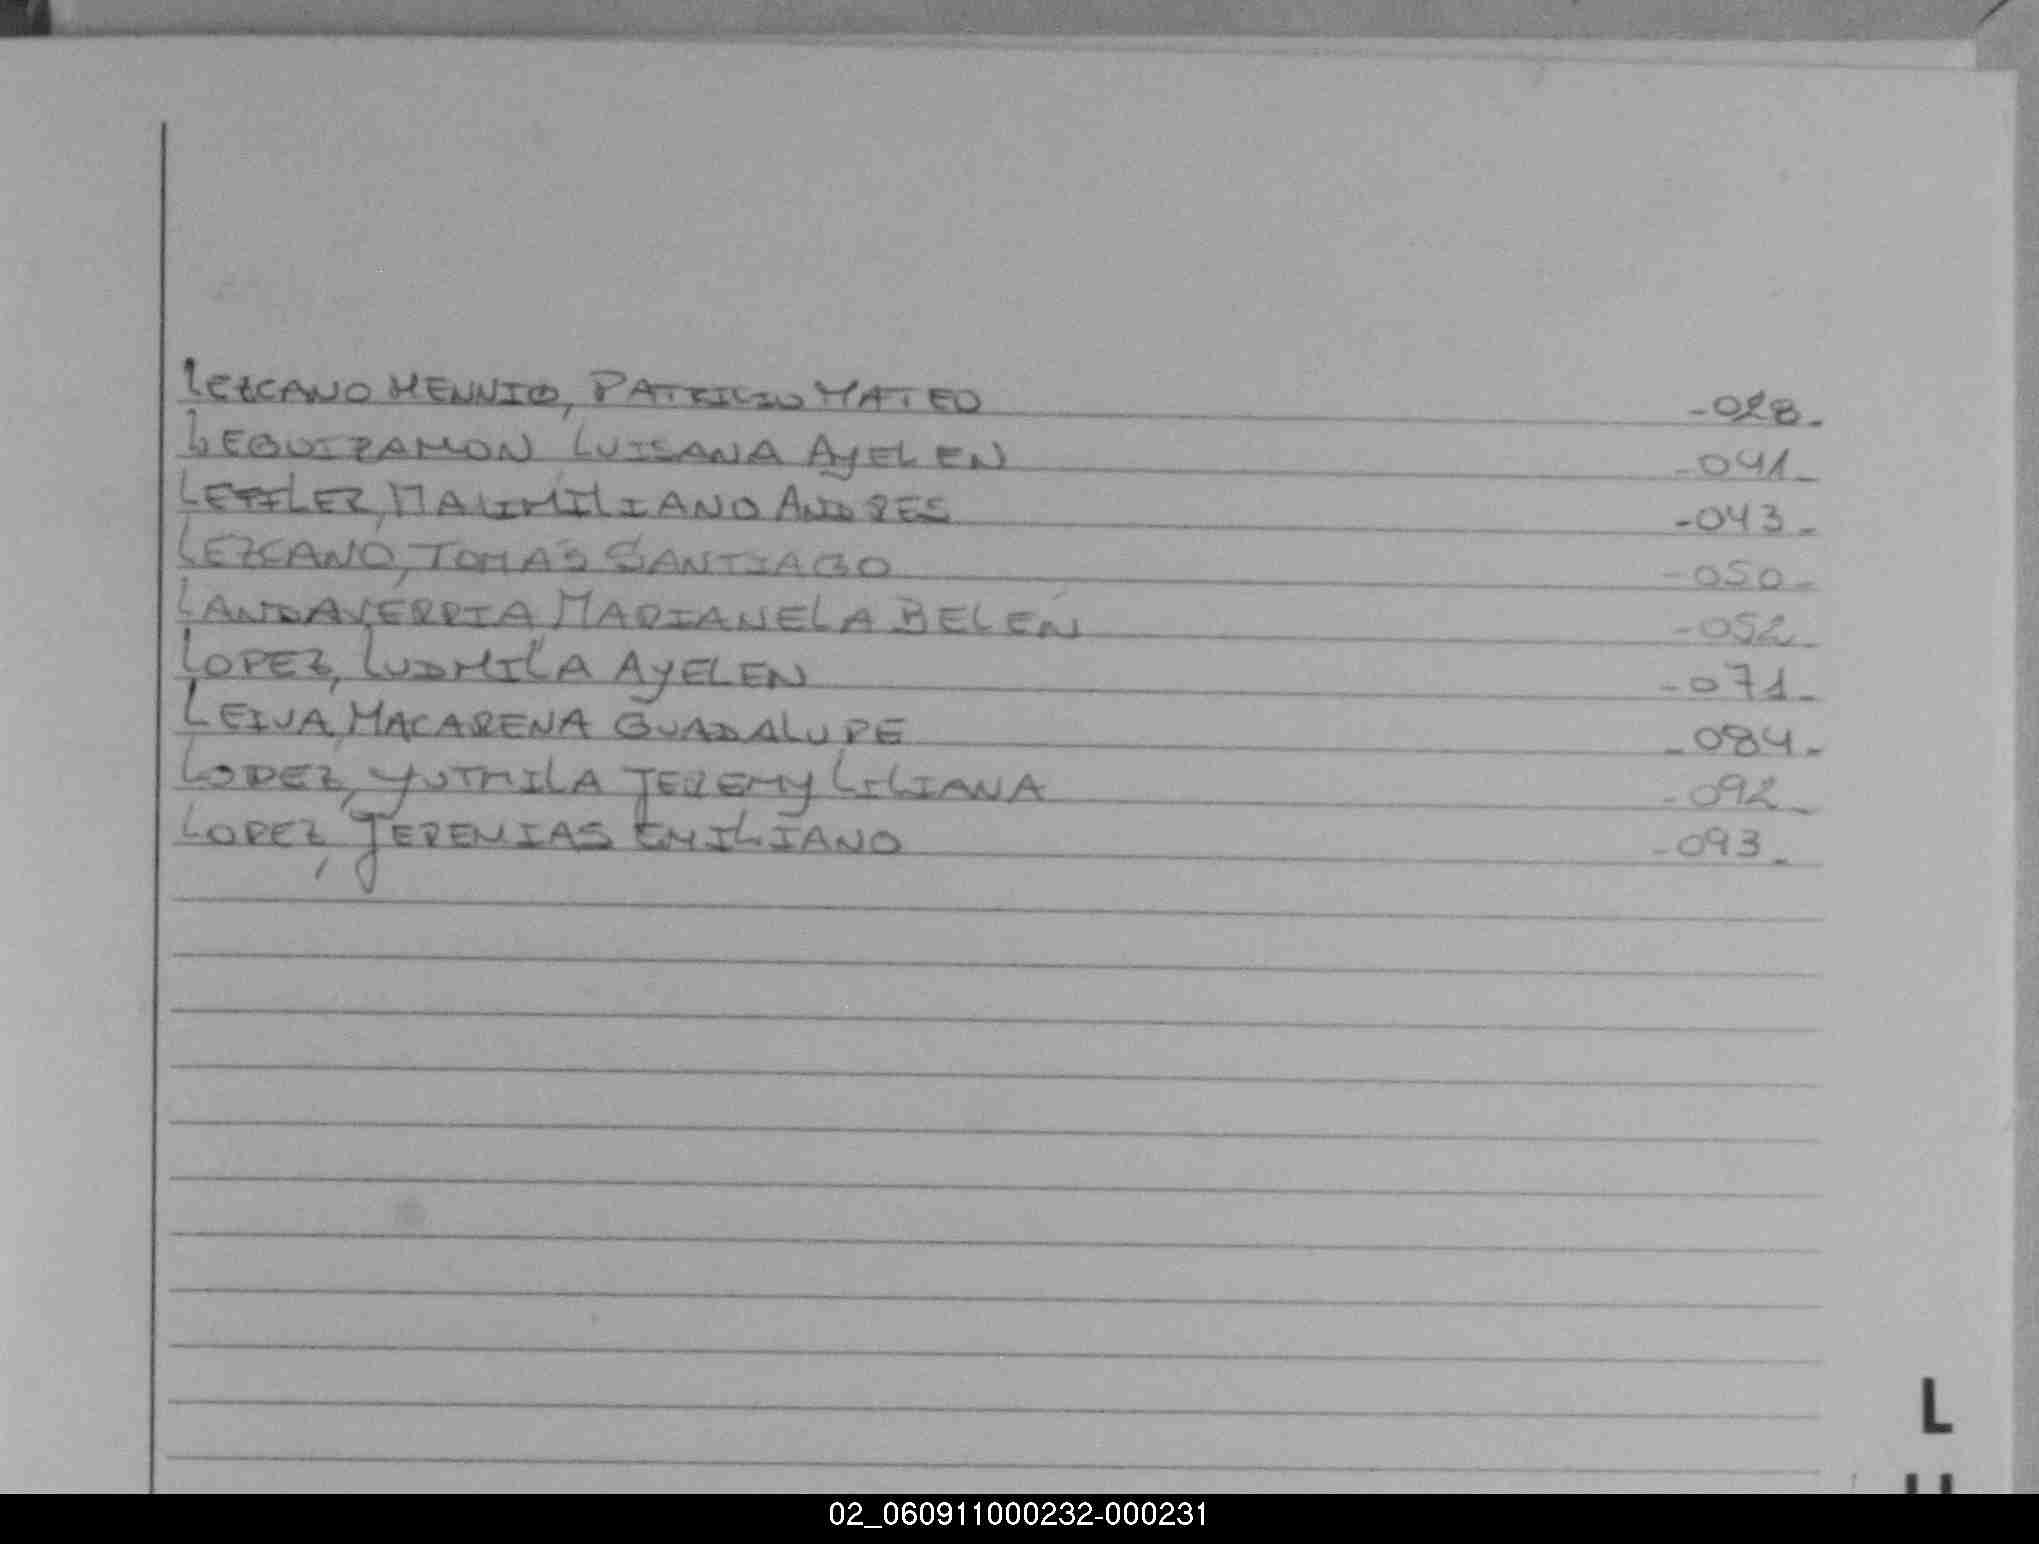 LEZCANO MENNIO, PATRICIO MATEO -028-
LEGUIZAMON LUISANA AYELEN -041-
LEFFLER, MAXIMILIANO ANDRES -043-
LEZCANO, TOMAS SANTIAGO -050-
LANDAVERRIA MARIANELA BELÉN -052-
LOPEZ, LUDMILA AYELEN -071-
LEIVA, MACARENA GUADALUPE -084-
LOPEZ, YUTHILA JEREMY LILIANA -092-
LOPEZ, JEREMIAS EMILIANO -093-
L
02_060911000232-000231